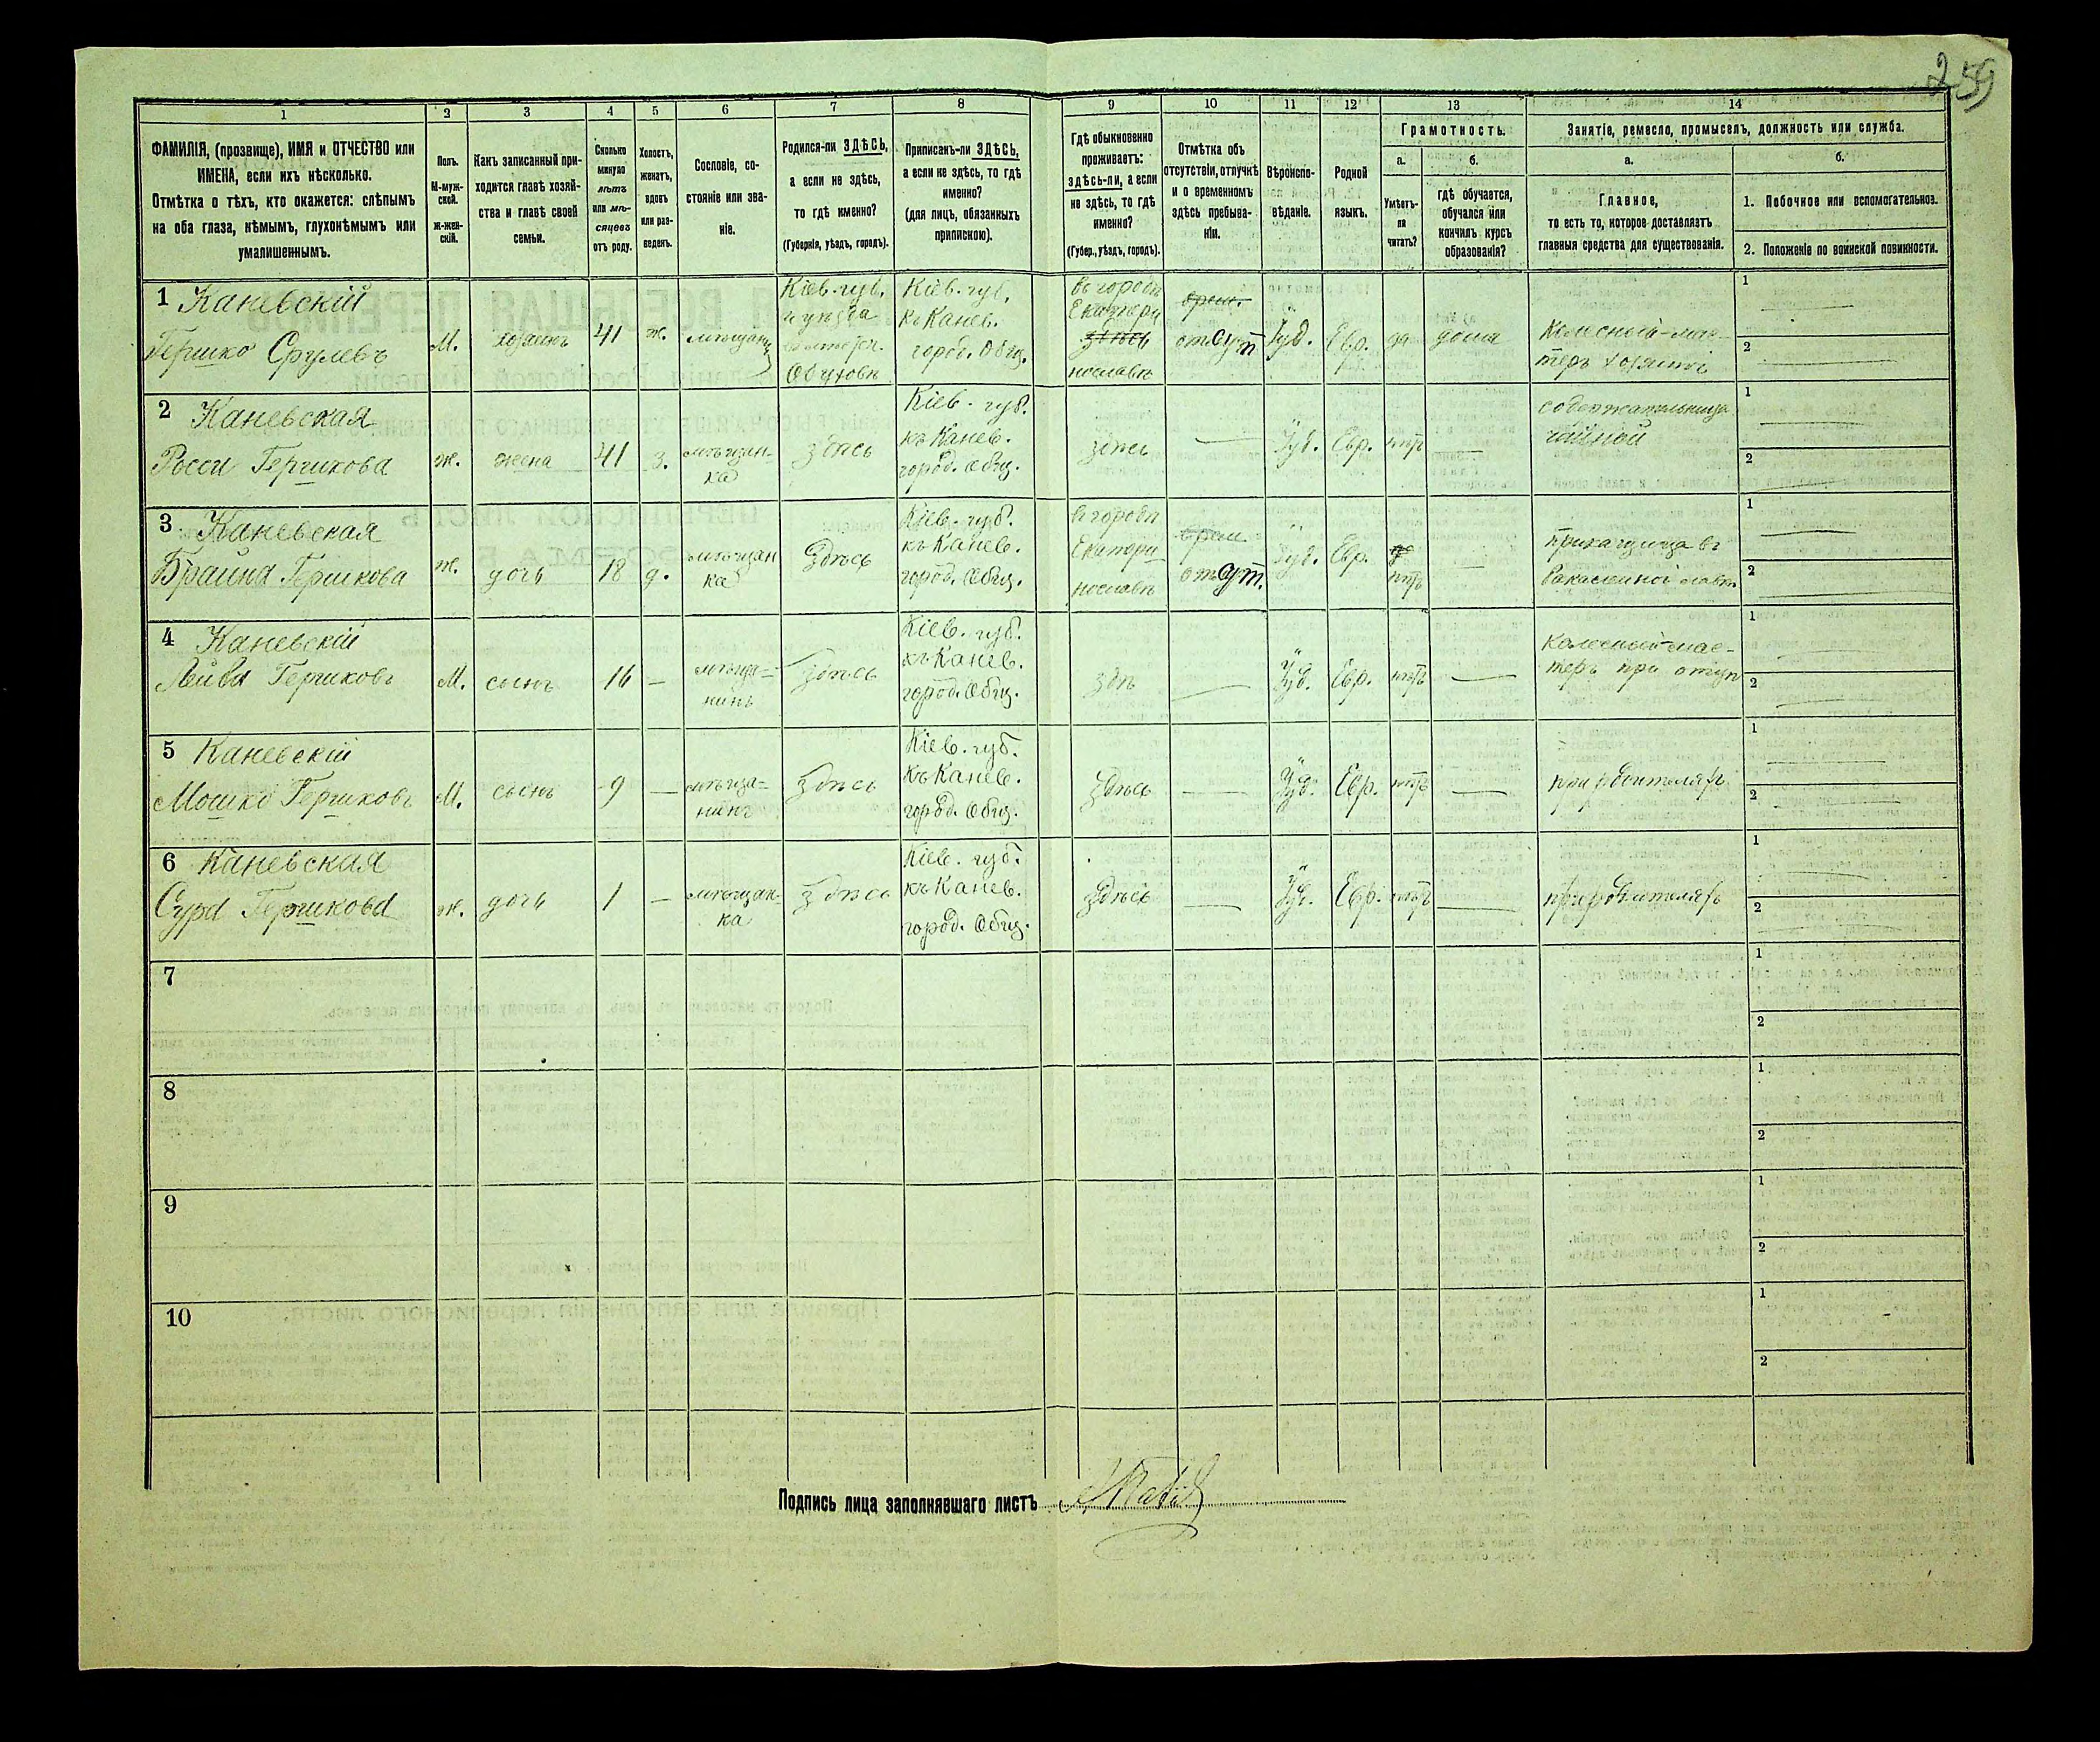 259
1
2
3
4
5
6
7
8
9
10
11
12
13
14
ФАМИЛІЯ, (прозвище), ИМЯ и ОТЧЕСТВО или
ИМЕНА, если ихъ нѣсколько.
Отмѣтка о тѣхъ, кто окажется: слѣпымъ
на оба глаза, нѣмымъ, глухонѣмымъ или
умалишеннымъ.
Полъ.
М-муж-
ской.
Ж-жен-
скій.
Какъ записанный при-
ходится главѣ хозяй-
ства и главѣ своей
семьи.
Сколько
минуло
лѣтъ
или мѣ-
сяцевъ
отъ роду.
Холостъ,
женатъ,
вдовъ
или раз-
веденъ.
Сословіе, со-
стояніе или зва-
ніе.
Родился-ли ЗДѢСЬ,
а если не здѣсь,
то гдѣ именно?
(Губернія, уѣздъ, городъ).
Приписанъ-ли ЗДѢСЬ,
а если не здѣсь, то гдѣ
именно?
(для лицъ, обязанныхъ
припискою).
Гдѣ обыкновенно
проживаетъ:
здѣсь-ли, а если
не здѣсь, то гдѣ
именно?
(Губер., уѣздъ, городъ).
Отмѣтка объ
отсутствіи, отлучкѣ
и о временномъ
здѣсь пребыва-
ніи.
Вѣроиспо-
вѣданіе.
Родной
языкъ.
Грамотность.
а.
б.
Умѣетъ-
ли
читать?
гдѣ обучается,
обучался или
кончилъ курсъ
образованія?
Занятіе, ремесло, промыселъ, должность или служба.
а.
б.
Главное,
то есть то, которое доставляетъ
главныя средства для существованія.
1. Побочное или вспомогательное.
2. Положеніе по воинской повинности.
1 Каневскій
Гершко Срулевъ
М.
хозяинъ
41
ж.
Кіев. губ.
Кіев. губ.
къ Канев.
город. Общ.
въ городѣ
Екатери
здѣсь
нославѣ
врем.
отсут
Іуд.
Евр.
да
дома
Колесный-мас-
теръ хозяинъ
1
2
2 Каневская
Росси Гершкова
ж.
жена
41
з.
мѣщан-
ка
здѣсь
Кіев. губ.
къ Канев.
город. Общ.
здѣсь
—
Іуд.
Евр.
нѣтъ
—
содержательница
чайной
1
2
3 Каневская
Браина Гершкова
ж.
дочь
18
д.
мѣщан
ка
Здѣсь
Кіев. губ.
къ Канев.
город. Общ.
въ городѣ
Екатери-
нославѣ
врем.
отсут.
Іуд.
Евр.
нѣтъ
—
приказчица въ
бакалейной лавкѣ
1
2
4 Каневскій
Лейба Гершковъ
М.
сынъ
16
—
мѣща-
нинъ
Здѣсь
Кіев. губ.
къ Канев.
город. Общ.
здѣ
—
Іуд.
Евр.
нѣтъ
—
колесный мас-
теръ при отцѣ
1
2
5 Каневскій
Мошко Гершковъ
М.
сынъ
9
—
мѣща-
нинъ
Здѣсь
Кіев. губ.
къ Канев.
город. Общ.
здѣсь
—
Іуд.
Евр.
нѣтъ
—
при родителяхъ
1
2
6 Каневская
Сура Гершкова
ж.
дочь
1
—
мѣщан-
ка
здѣсь
Кіев. губ.
къ Канев.
город. Общ.
здѣсь
—
Іуд.
Евр.
нѣтъ
—
при родителяхъ
1
2
7
1
2
8
1
2
9
1
2
10
1
2
Подпись лица заполнявшаго листъ